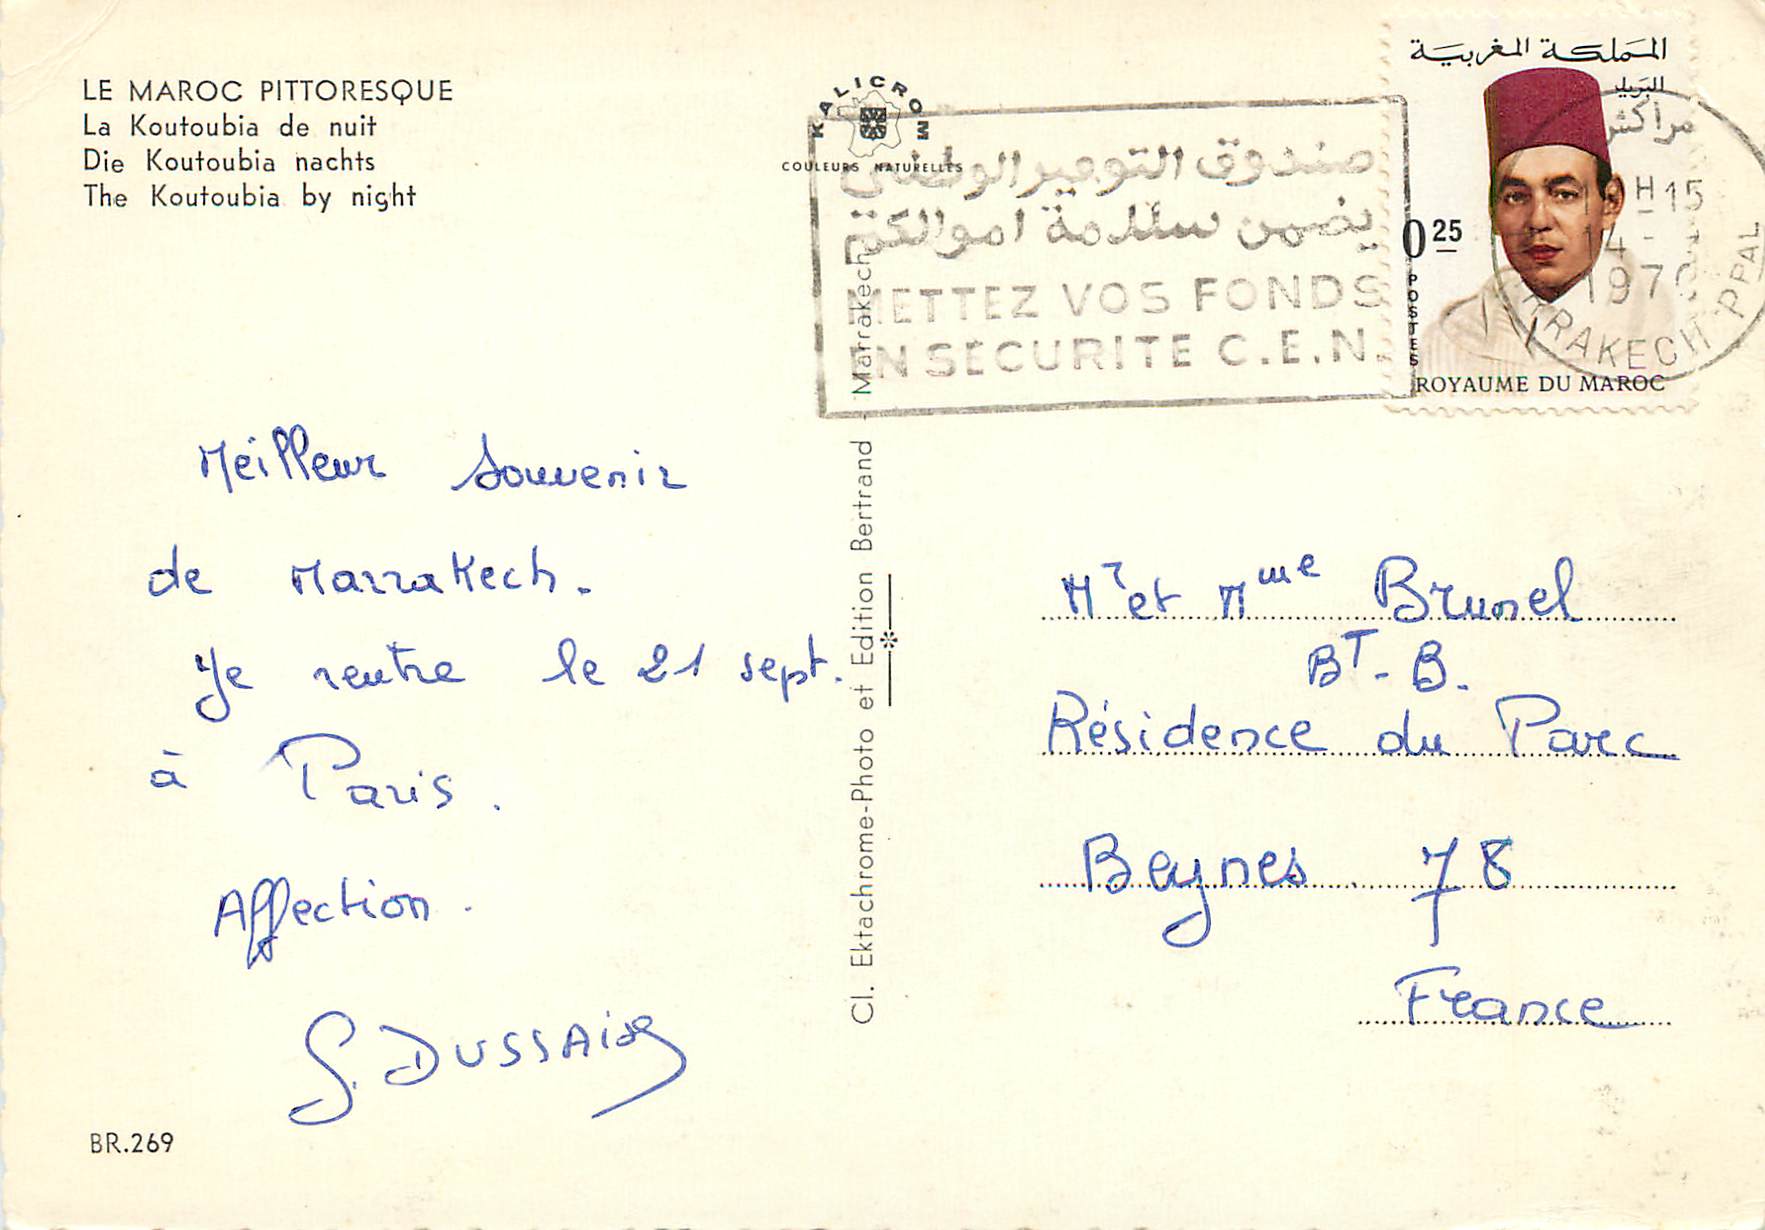 LE MAROC PITTORESQUE
La Koutoubia de nuit
Die Koutoubia nachts
The Koutoubia by night
KALICROM
COULEURS NATURELLES
صندوق التوفير الوطني
يضمن سلامة اموالكم
METTEZ VOS FONDS
EN SECURITE C.E.N.
المملكة المغربية
البريد
مراكش
H 15
14 -
197
RRAKECH PPAL
0 25
POSTES
ROYAUME DU MAROC
Meilleur Souvenir
de Marrakech.
Je rentre le 21 sept.
à Paris.
Affection.
BR.269
Cl. Ektachrome-Photo et Edition Bertrand - Marrakech
Mr et Mme Brunel
BT - B.
Résidence du Parc
Beynes 78
France